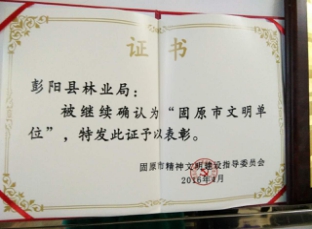 证书
彭阳县林业局：
被继续确认为“固原市文明单
位”，特发此证予以表彰。
固原市精神文明建设指导委员会
2016年4月